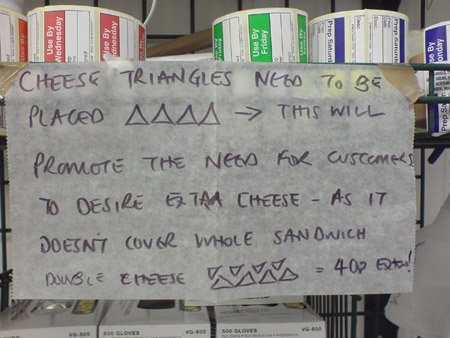 Use By
Wednesday
Use By
Use By
Friday
Use By
Prep Saturday
CHEESE TRIANGLES NEED TO BE
PLACED △△△△ → THIS WILL
PROMOTE THE NEED FOR CUSTOMERS
TO DESIRE EXTRA CHEESE - AS IT
DOESN'T COVER WHOLE SANDWICH
DOUBLE CHEESE = 40p EXTRA!
VG-500
500 GLOVES
500 GLOVES
VG-500